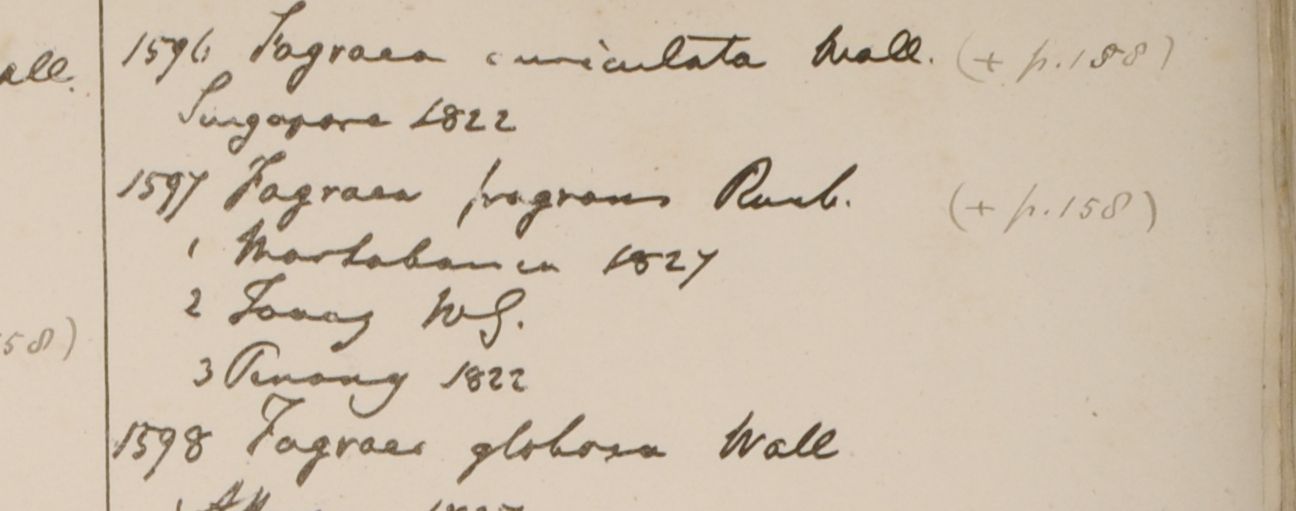 all.
1596 Fagraea auriculata Wall. (+ p. 158)
Singapore 1822
1597 Fagraea fragrans Roxb. (+ p. 158)
1 Martabania 1827
2 Tavoy W.G.
58)
3 Penang 1822
1598 Fagraea globosa Wall